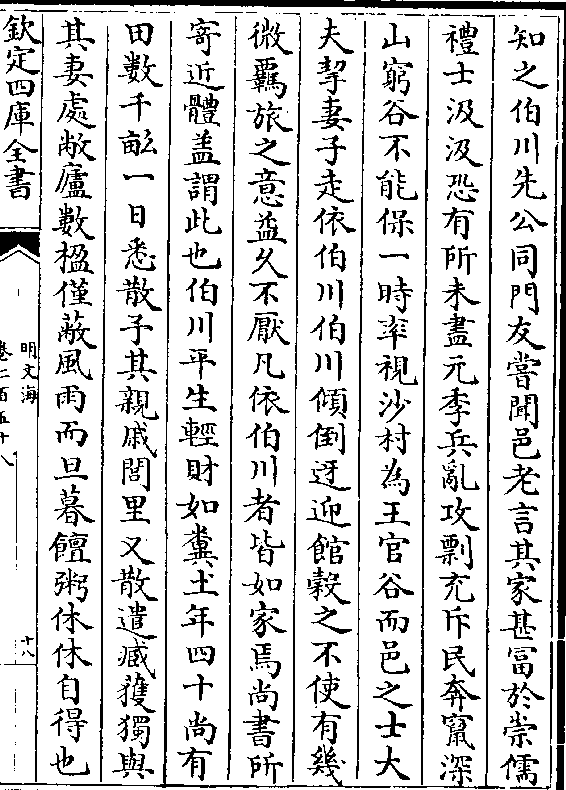 知之伯川先公同門友嘗聞邑老言其家甚富於崇儒
禮士汲汲恐有所未盡元季兵亂攻剽充斥民奔竄深
山窮谷不能保一時率視沙村為王官谷而邑之士大
夫挈妻子走依伯川伯川傾倒迓迎館榖之不使有幾
微羈旅之意益乆不厭凡依伯川者皆如家焉尚書所
寄近體盖謂此也伯川平生輕財如糞土年四十尚有
田數千畝一日悉散予其親戚閭里又散遣臧獲獨與
其妻處敝廬數楹僅蔽風雨而旦暮饘粥休休自得也
欽定四庫全書
明文海
卷二百五十八
十八